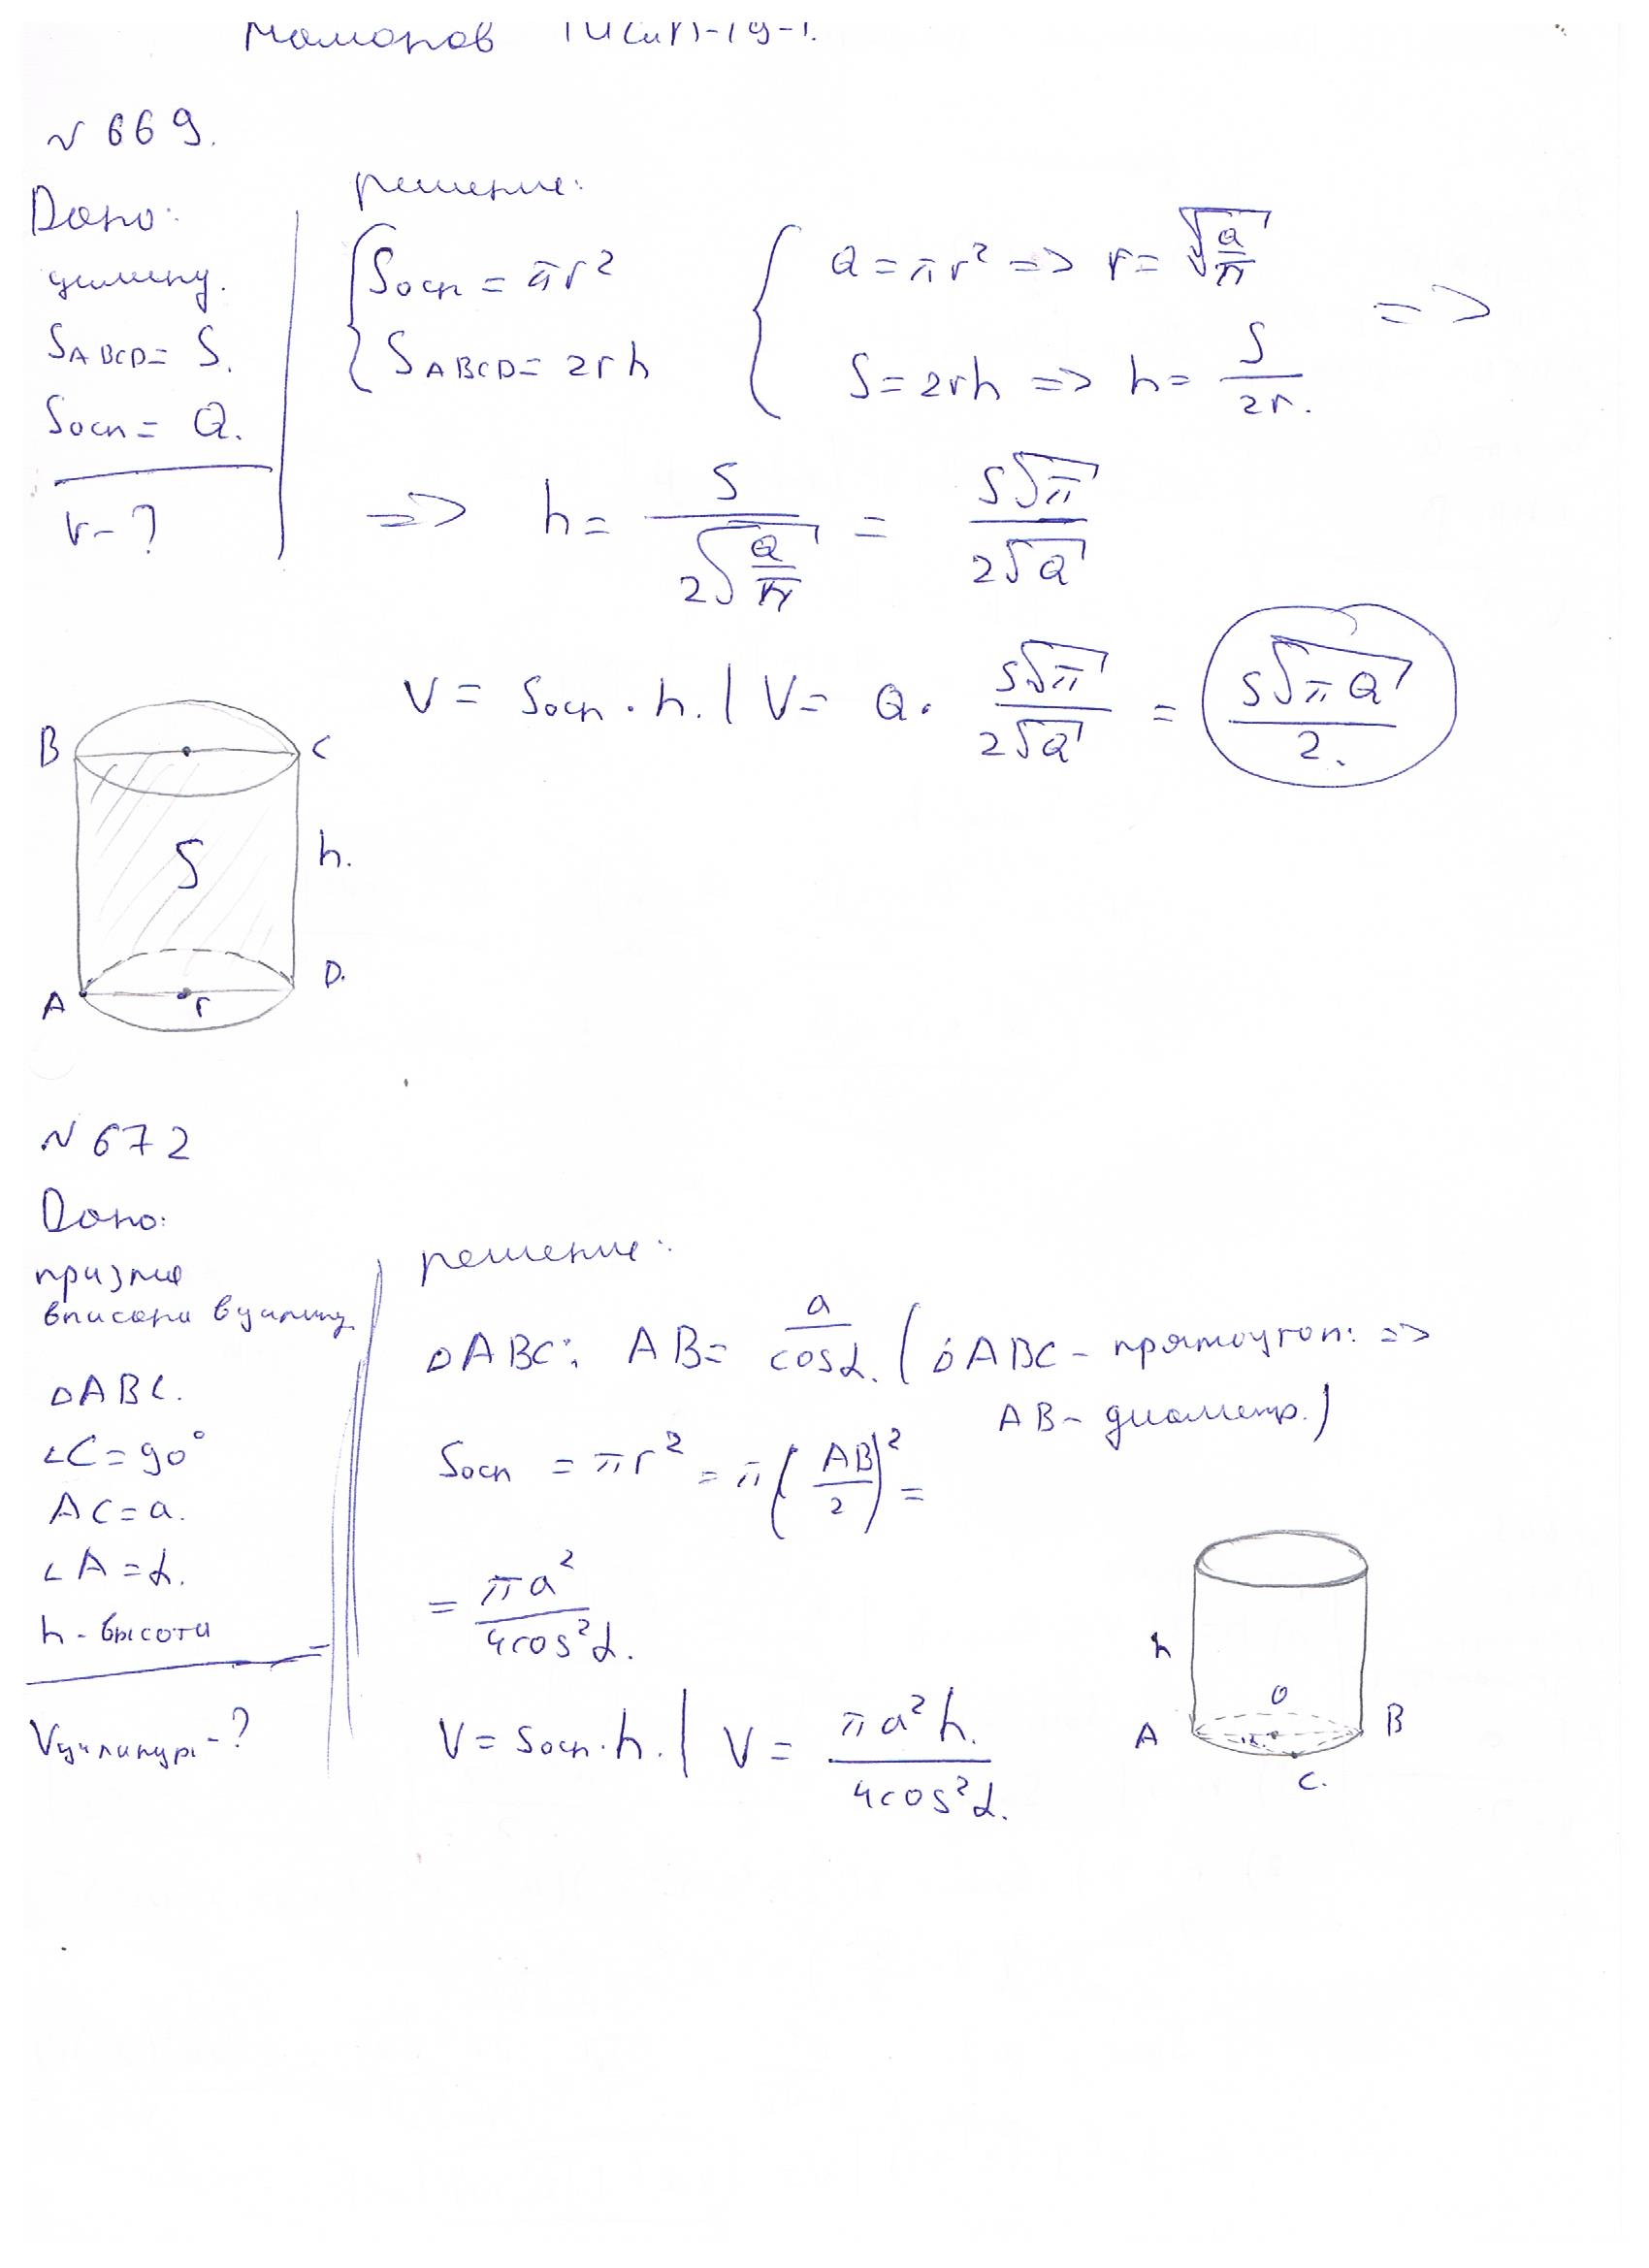 № 669.
Дано:
цилинд.
SABCD = S.
Sосн = Q.
V - ?
решение:
{ Sосн = πr²
{ SABCD = 2rh
{ Q = πr² => r = √(Q/π)
{ S = 2rh => h = S/2r. =>
=> h = S/(2√(Q/π)) = S√π/(2√Q)
V = Sосн · h. | V = Q · S√π/(2√Q) = S√(πQ)/2.
B C
S h.
A r D.
№ 672
Дано:
призма
вписана в цилинд
△ABC.
∠C = 90°
AC = a.
∠A = α.
h - высота
Vцилиндра - ?
решение:
△ABC: AB = a/cosα. (△ABC - прямоугол. =>
AB - диаметр.)
Sосн = πr² = π(AB/2)² =
= πa²/4cos²α.
V = Sосн · h. | V = πa²h./4cos²α.
h
O
A B
C.